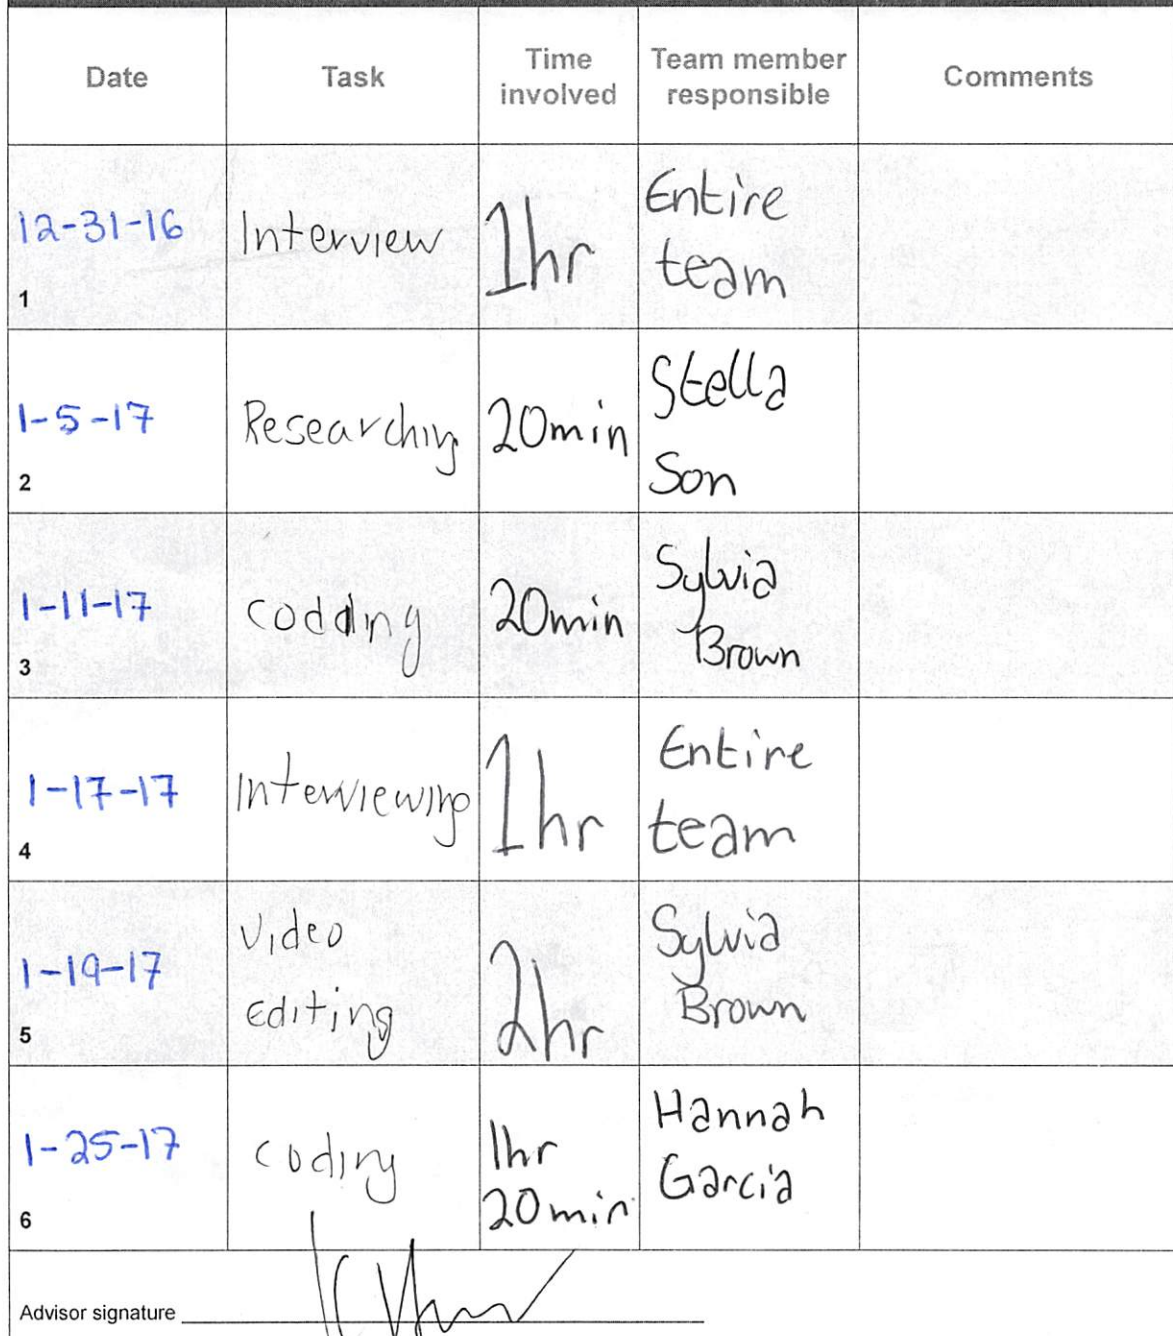 Date Task Time involved Team member responsible Comments
12-31-16 Interview 1hr Entire team
1
1-5-17 Researching 20min Stella Son
2
1-11-17 codding 20min Sylvia Brown
3
1-17-17 Interviewing 1hr Entire team
4
1-19-17 Video editing 2hr Sylvia Brown
5
1-25-17 coding 1hr 20min Hannah Garcia
6
Advisor signature